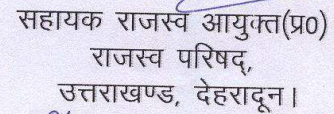 सहायक राजस्व आयुक्त(प्र0)
राजस्व परिषद्,
उत्तराखण्ड, देहरादून।